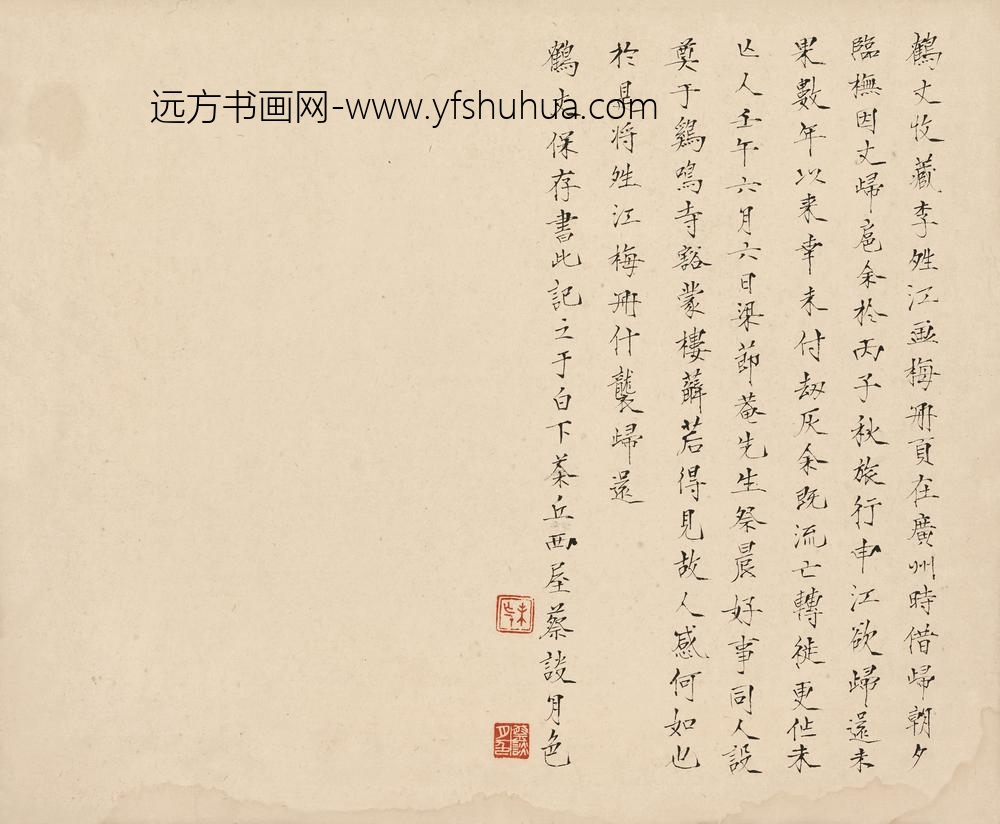 鶴丈收藏李姓江畫梅册頁在廣州時借歸朝夕
臨橅因丈歸扈余於丙子秋旅行申江欲歸還未
果數年以來幸未付劫灰余既流亡轉徙更作未
亾人壬午六月六日梁節菴先生祭晨好事同人設
奠于鷄鳴寺豁蒙樓薜若得見故人感何如也
於是將姓江梅册什襲歸還
鶴丈保存書此記之于白下茶丘画屋蔡談月色
远方书画网-www.yfshuhua.com